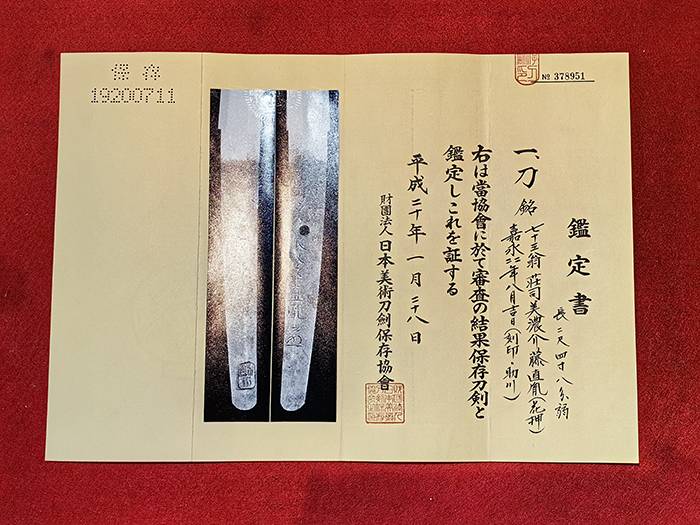 鑑定書
No 378951
一、刀 銘 七十三翁荘司美濃介藤直胤(花押)
嘉永二二年八月吉日(刻印・助川)
長二尺四寸八分弱
右は當協會に於て審査の結果保存刀剣と
鑑定しこれを証する
平成二十年一月二十八日
財團法人 日本美術刀劍保存協會
保存
19200711